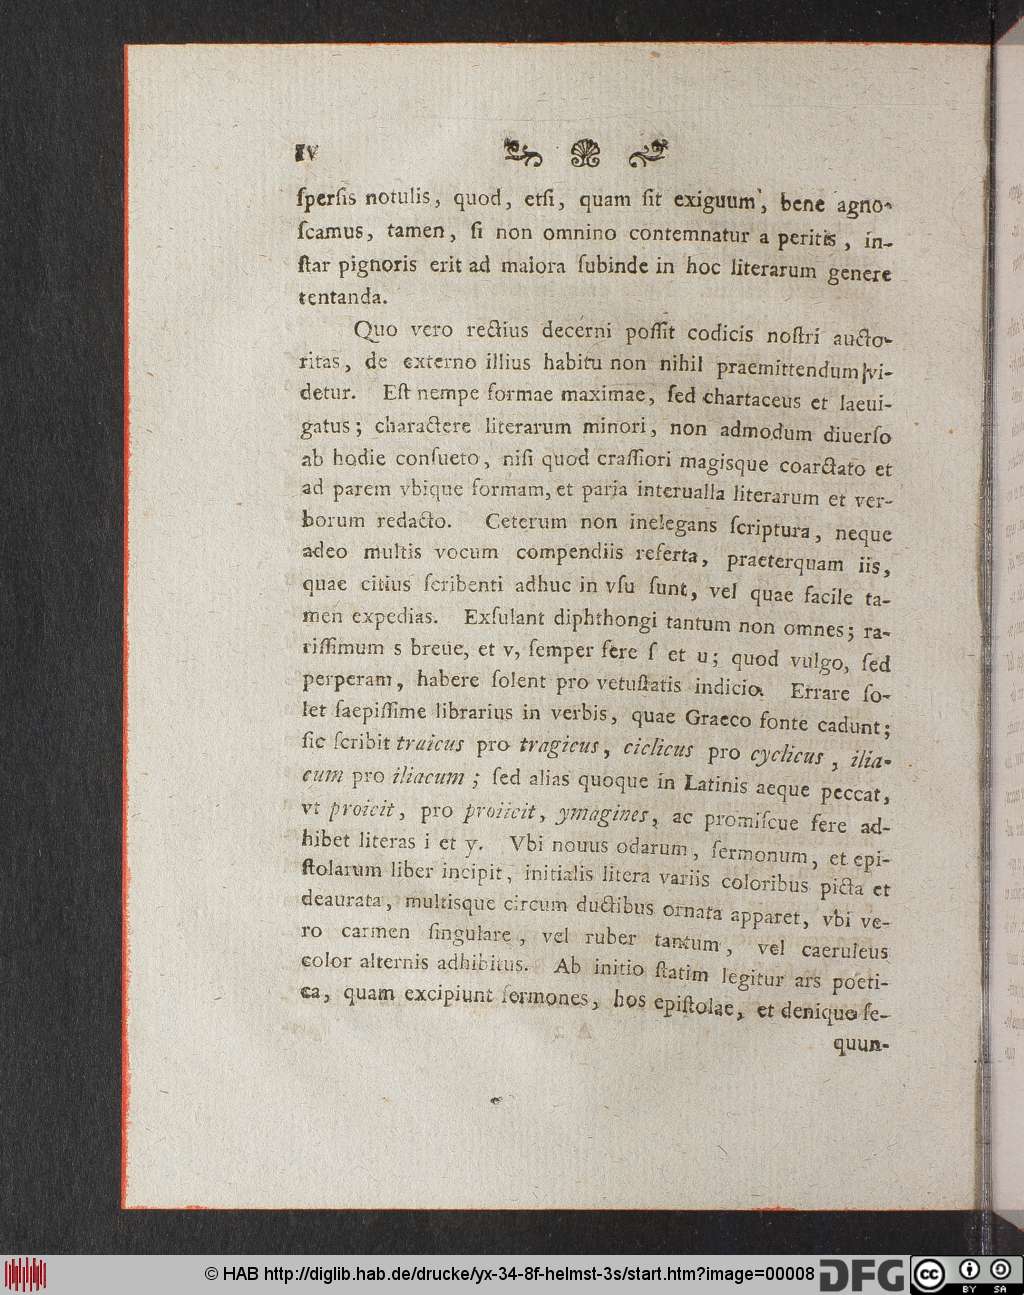 IV
ſperſis notulis, quod, etſi, quam ſit exiguum, bene agno-
ſcamus, tamen, ſi non omnino contemnatur a peritis, in-
ſtar pignoris erit ad maiora ſubinde in hoc literarum genere
tentanda.
Quo vero rectius decerni poſſit codicis noſtri aucto-
ritas, de externo illius habitu non nihil praemittendum vi-
detur. Eſt nempe formae maximae, ſed chartaceus et laeui-
gatus; charactere literarum minori, non admodum diuerſo
ab hodie conſueto, niſi quod craſſiori magisque coarctato et
ad parem vbique formam, et paria interualla literarum et ver-
borum redacto. Ceterum non inelegans ſcriptura, neque
adeo multis vocum compendiis referta, praeterquam iis,
quae citius ſcribenti adhuc in vſu ſunt, vel quae facile ta-
men expedias. Exſulant diphthongi tantum non omnes; ra-
riſſimum s breue, et v, ſemper fere ſ et u; quod vulgo, ſed
perperam, habere ſolent pro vetuſtatis indicio. Errare ſo-
let ſaepiſſime librarius in verbis, quae Graeco fonte cadunt;
ſic ſcribit traicus pro tragicus, ciclicus pro cyclicus, ilia-
cum pro iliacum; ſed alias quoque in Latinis aeque peccat,
vt proicit, pro proiicit, ymagines, ac promiſcue fere ad-
hibet literas i et y. Vbi nouus odarum, ſermonum, et epi-
ſtolarum liber incipit, initialis litera variis coloribus picta et
deaurata, multisque circum ductibus ornata apparet, vbi ve-
ro carmen ſingulare, vel ruber tantum, vel caeruleus
color alternis adhibitus. Ab initio ſtatim legitur ars poeti-
ca, quam excipiunt ſermones, hos epiſtolae, et denique ſe-
quun-
© HAB http://diglib.hab.de/drucke/yx-34-8f-helmst-3s/start.htm?image=00008
DFG
cc
BY SA